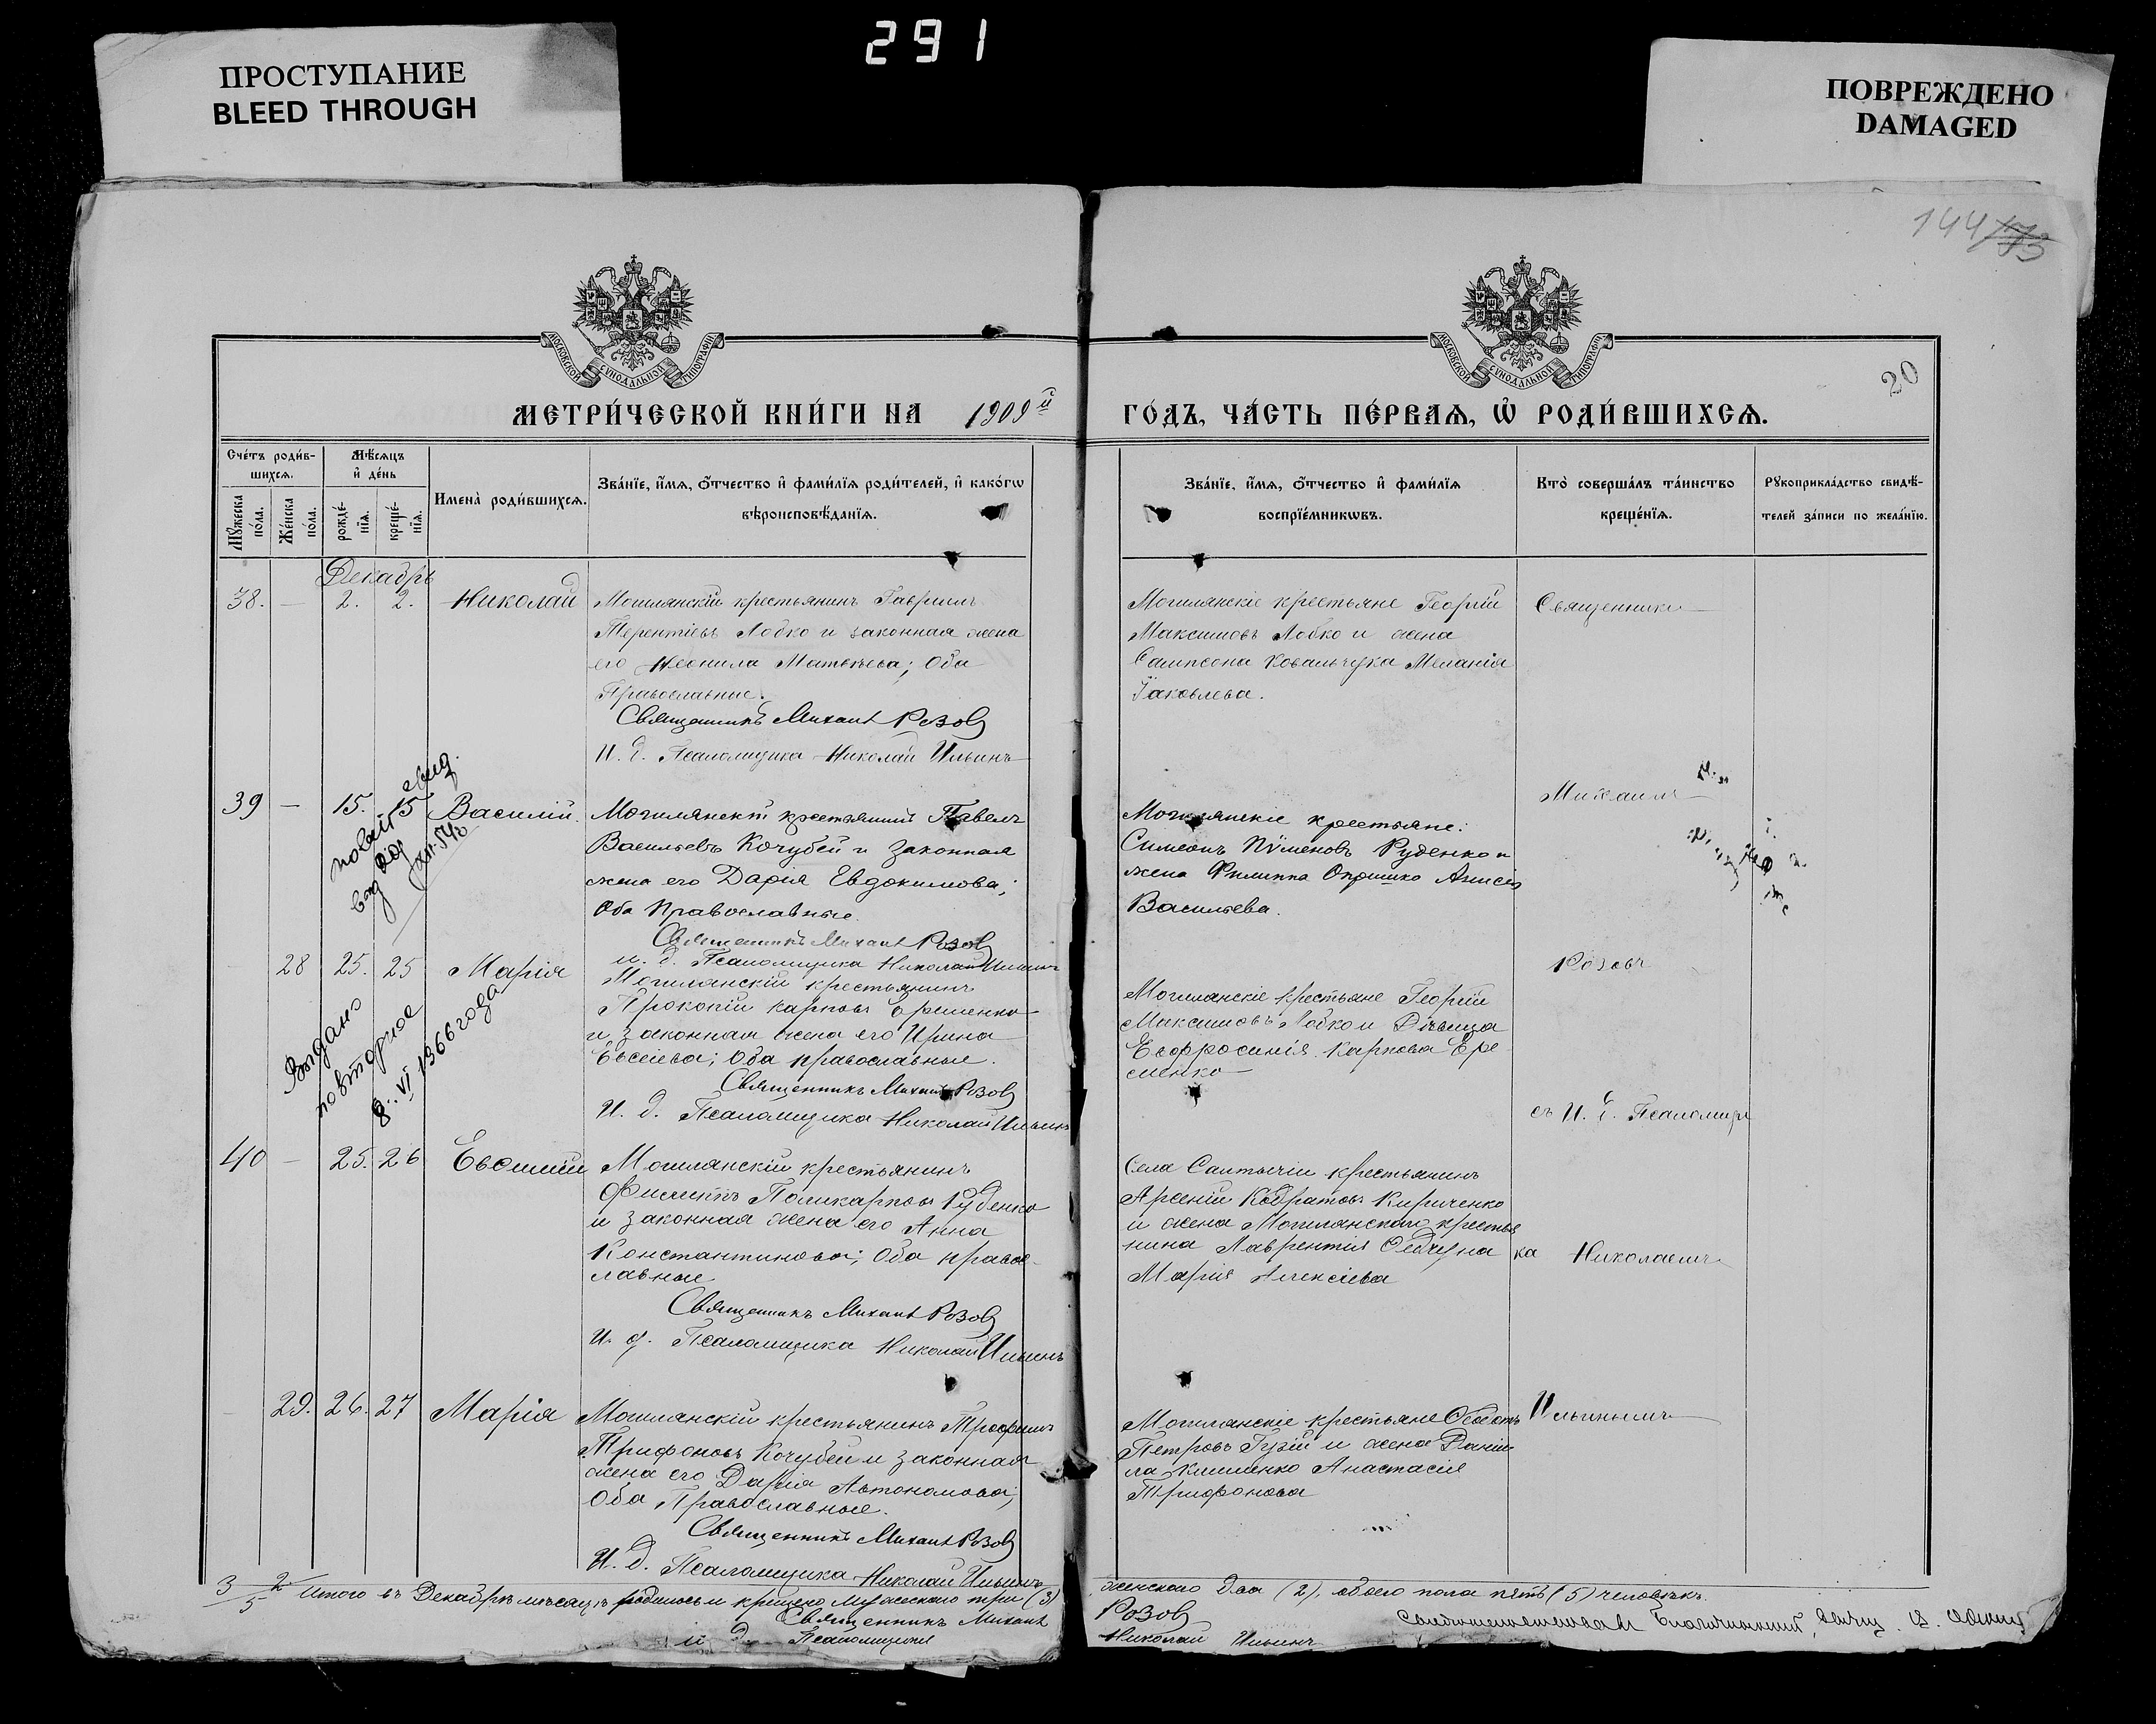 291
ПРОСТУПАНИЕ
BLEED THROUGH
ПОВРЕЖДЕНО
DAMAGED
144 73
20
МОСКОВСКОЙ СѴНОДАЛЬНОЙ ТИПОГРАФІИ
МОСКОВСКОЙ СѴНОДАЛЬНОЙ ТИПОГРАФІИ
МЕТРИ́ЧЕСКОЙ КНИ́ГИ НА 1909й ГО́ДЪ, ЧА́СТЬ ПЕ́РВАѦ, Ѡ҆ РОДИ́ВШИХСѦ.
Сче́тъ роди́в-
шихсѧ.
Мѣ́сѧцъ
и҆ де́нь
Мꙋ́жеска
по́ла.
Же́нска
по́ла.
рожде́-
нїѧ.
креще́-
нїѧ.
Имена̀ роди́вшихсѧ.
Зва́нїе, и҆́мѧ, ѻ҆́тчество и҆ фами́лїѧ роди́телей, и҆ како́гѡ
вѣроисповѣ́данїѧ.
Зва́нїе, и҆́мѧ, ѻ҆́тчество и҆ фами́лїѧ
воспрїе́мникѡвъ.
Кто̀ соверша́лъ та́инство
креще́нїѧ.
Рꙋкоприкла́дство свидѣ́-
телей за́писи по жела́нїю.
Декабрь
38. — 2. 2. Николай
Могилянскій крестьянинъ Гавріилъ
Терентіевъ Лобко и законная жена
его Неонила Матвѣева; Оба
Православные.
Священникъ Михаил Розов
И. д. Псаломщика Николай Ильинъ
Могилянскіе крестьяне Георгій
Максимовъ Лобко и жена
Сампсона Ковальчука Меланія
Іаковлева.
Священникъ
39 — 15. 15 Василій.
Могилянскій крестьянинъ Павелъ
Васильевъ Кочубей и законная
жена его Дарія Евдокимова;
Оба Православные.
Священникъ Михаил Розов
и. д. Псаломщика Николай Ильинъ
Могилянскіе крестьяне:
Симеонъ Пѵменовъ Руденко и
жена Филиппа Опришко Анисія
Васильева.
Михаилъ
28 25. 25 Марія
Выдано
повторное
8. VI 1966 года
Могилянскій крестьянинъ
Прокопій Карповъ Еременко
и законная жена его Ирина
Евсеіева; Оба православные.
Священникъ Михаил Розов
И. д. Псаломщика Николай Ильинъ
Могилянскіе крестьяне Георгій
Максимовъ Лобко и Дѣвица
Евфросинія Карпова Ере-
менко
Розовъ
съ И. д. Псаломщи
40 — 25. 26 Евѳимій
Могилянскій крестьянинъ
Поликарповъ Руденко
и законная жена его Анна
Константинова; Оба право-
славные
Священникъ Михаил Розов
И. д. Псаломщика Николай Ильинъ
Села Салтычіи крестьянинъ
Арсеній Кириченко
и жена Могилянскаго крестья
нина Лаврентія
Марія Алексіева
ка Николаемъ
29. 26. 27 Марія
Могилянскій крестьянинъ Трофимъ
Трифоновъ Кочубей и законная
жена его Дарія Автономова;
Оба Православные.
Священникъ Михаил Розов
И. д. Псаломщика Николай Ильинъ
Могилянскіе крестьяне
Петровъ Гузій и жена Даніи-
ла Клименко Анастасія
Трифонова
Ильинымъ
3 2 5 Итого въ Декабрѣ мѣсяцѣ родилось и крещено Мужескаго три (3)
женскаго два (2), обоего пола пять (5) человѣкъ.
Священникъ Михаил Розов
и д Псаломщика Николай Ильинъ